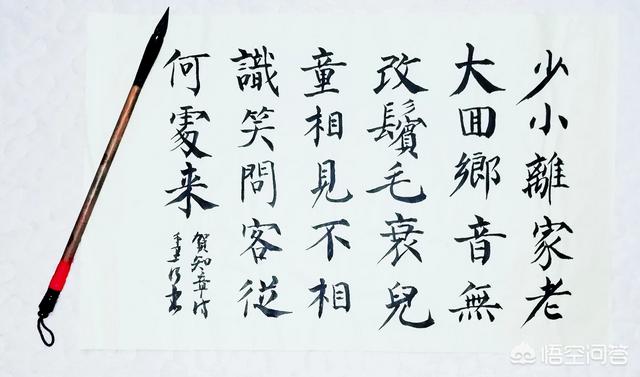 少小離家老
大囬鄉音無
改鬢毛衰兒
童相見不相
識笑問客從
何處来
賀知章诗
悟空问答